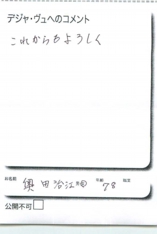 デジャ・ヴュへのコメント
これからもよろしく
お名前 田 江 年齢 78
公開不可